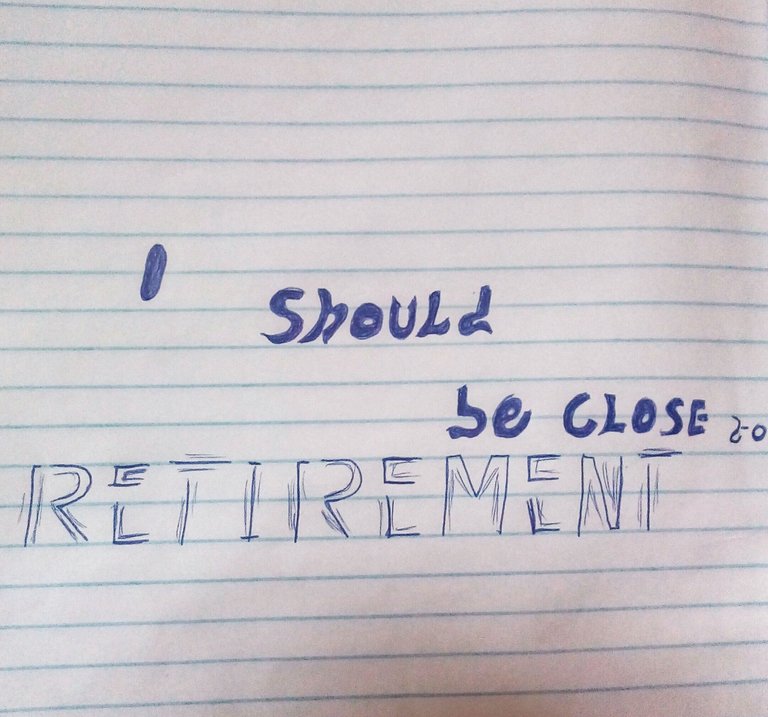 I
Should
be CLOSE to
RETIREMENT